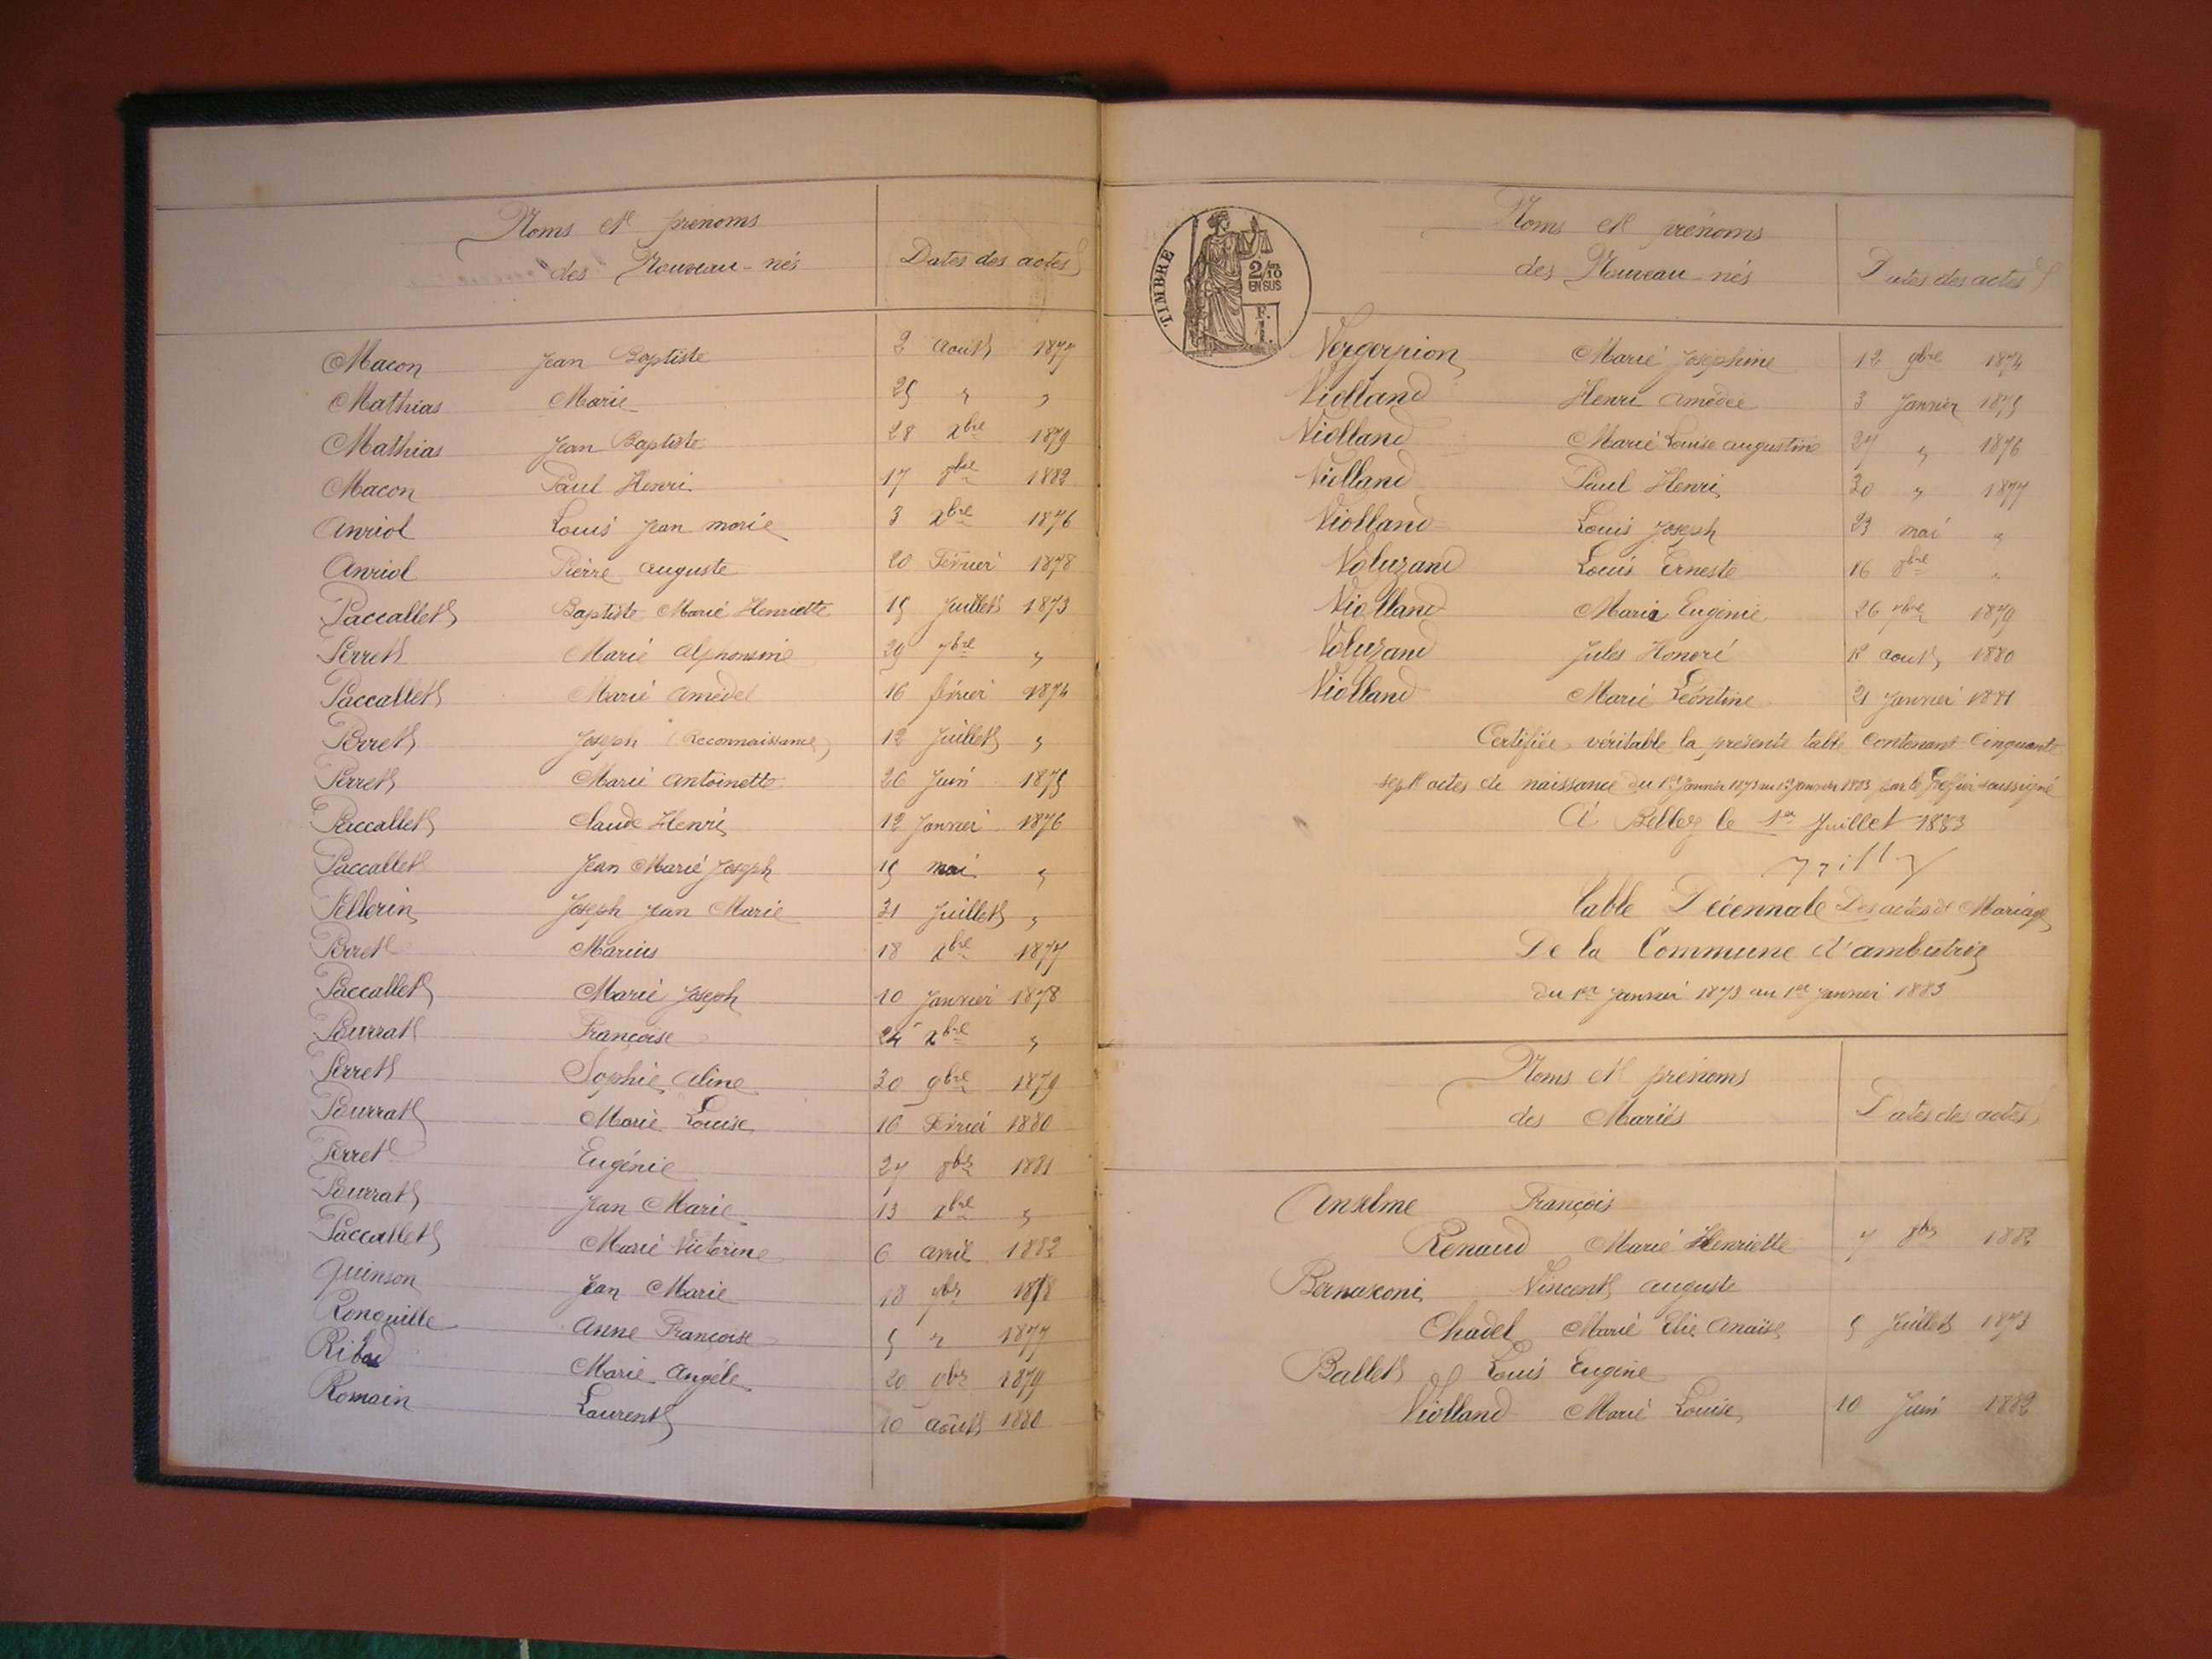 Noms et prenoms
des Nouveau-nés
Dates des actes
Macon Jean Baptiste 2 Août 1877
Mathias Marie 25 " "
Mathias Jean Baptiste 28 Xbre 1879
Macon Paul Henri 17 8bre 1882
Anriol Louis Jean Marie 3 Xbre 1876
Anriol Pierre Auguste 20 Février 1878
Paccallet Baptiste Marie Henriette 15 Juillet 1873
Perret Marie Alphonsine 29 7bre "
Paccallet Marie Amédée 16 février 1874
Perret Joseph (Reconnaissance) 12 Juillet "
Perret Marie Antoinette 26 Juin 1875
Paccallet Claude Henri 12 Janvier 1876
Paccallet Jean Marie Joseph 15 mai "
Pellerin Joseph Jean Marie 31 Juillet "
Perret Marius 18 Xbre 1877
Paccallet Marie Joseph 10 Janvier 1878
Pourrat Françoise 24 Xbre "
Perret Sophie Aline 30 9bre 1879
Pourrat Marie Louise 16 Février 1880
Perret Eugénie 27 8bre 1881
Pourrat Jean Marie 13 Xbre "
Paccallet Marie Victorine 6 avril 1882
Quinson Jean Marie 18 1878
Ronquille Anne Françoise 5 " 1877
Marie Angèle 20 9bre 1879
Romain Laurent 10 août 1880
TIMBRE
2/10
EN SUS
F.
1.
Noms et prénoms
des Nouveau-nés
Dates des actes
Vergerpion Marie Josephine 12 9bre 1874
Violland Henri Amedée 3 Janvier 1875
Violland Marie Louise Augustine 27 " 1876
Violland Paul Henri 30 " 1877
Violland Louis Joseph 23 mai "
Voluzand Louis Erneste 16 8bre "
Violland Marie Eugénie 26 7bre 1879
Voluzand Jules Honoré août 1880
Violland Marie Léontine 21 Janvier 1881
Certifiée véritable la présente table contenant Cinquante
sept actes de naissance du 1er Janvier 1873 au 1er Janvier 1883 par le Greffier soussigné
A Belley le 1er Juillet 1883
Table Décennale Des actes de Mariage
De la Commune d'ambutrix
du 1er Janvier 1873 au 1er Janvier 1883
Noms et prénoms
des Mariés
Dates des actes
Anselme François
Renaud Marie Henriette 7 8bre 1882
Bernasconi Vincent Auguste
Chadel Marie Elie Anaïse 5 Juillet 1873
Ballet Louis Eugene
Violland Marie Louise 10 Juin 1882